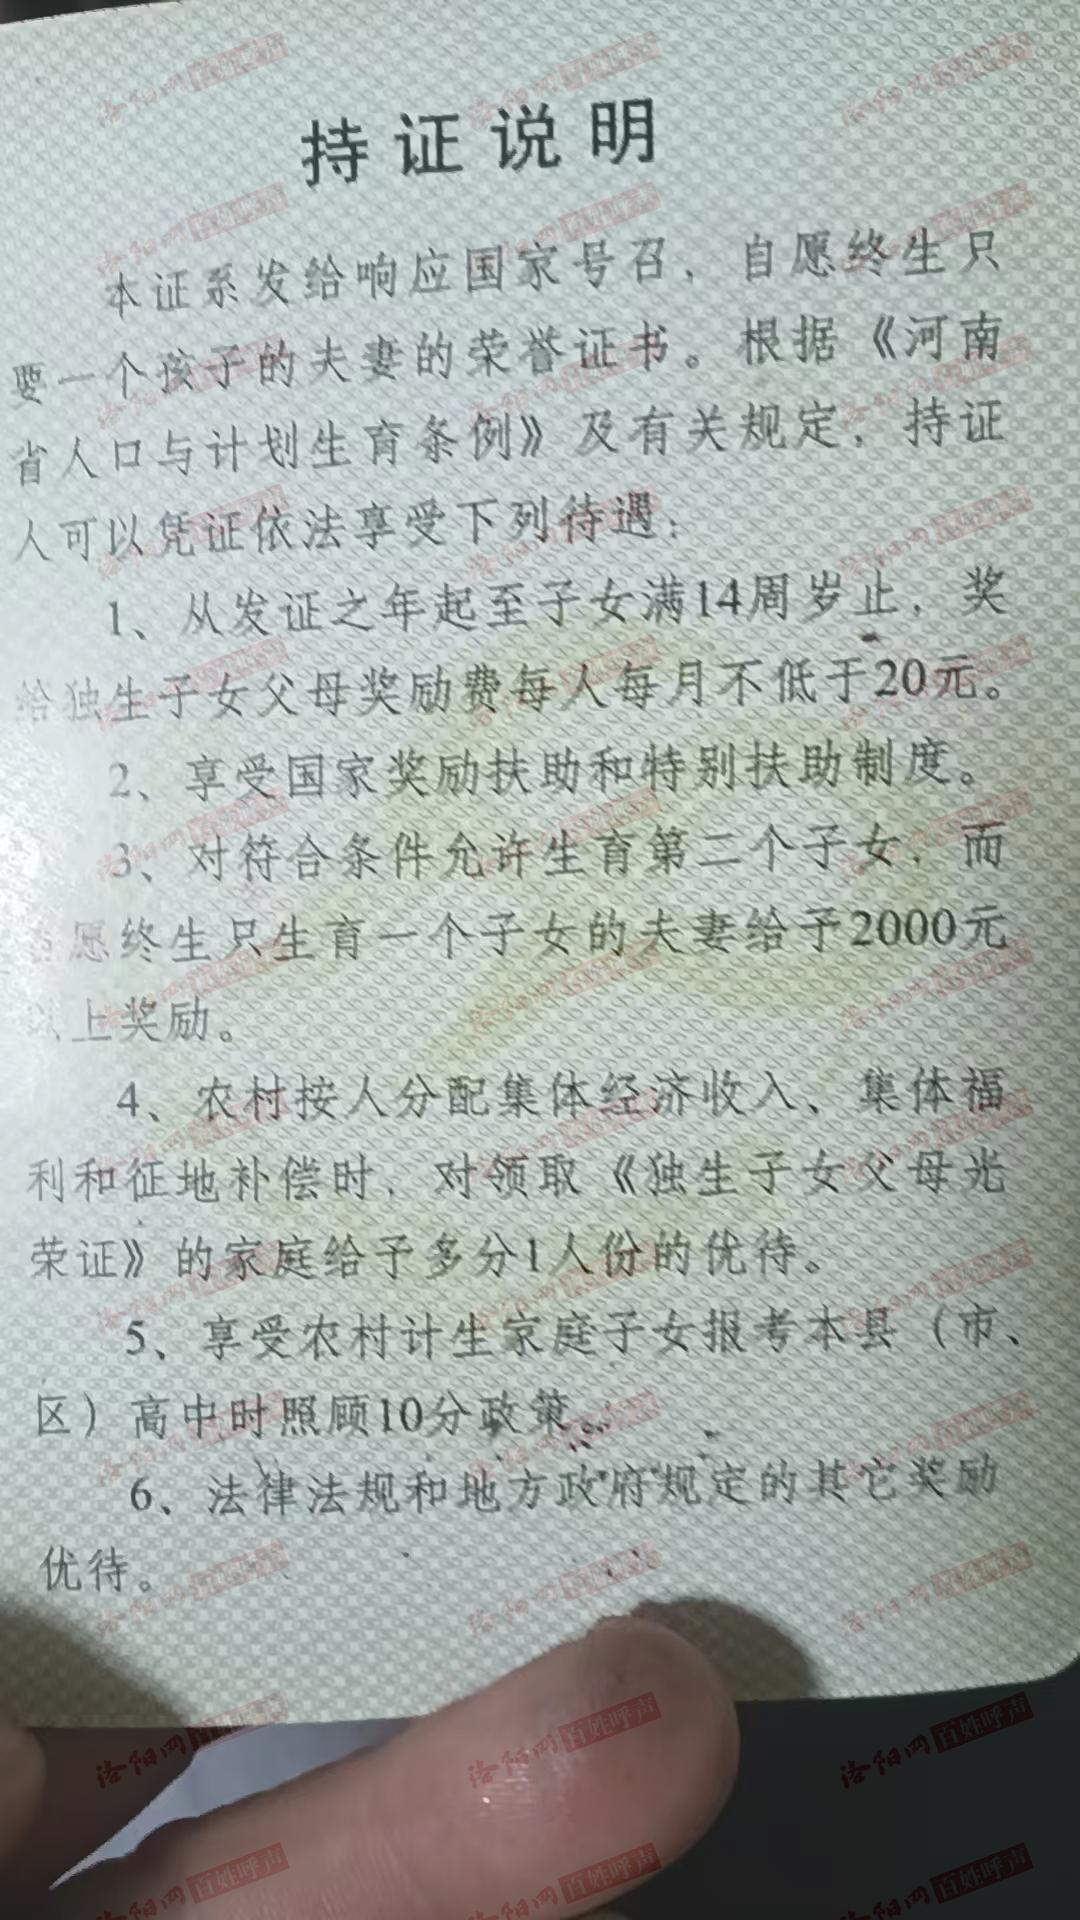 持证说明
本证系发给响应国家号召，自愿终生只
要一个孩子的夫妻的荣誉证书。根据《河南
省人口与计划生育条例》及有关规定，持证
人可以凭证依法享受下列待遇：
1、从发证之年起至子女满14周岁止，奖
给独生子女父母奖励费每人每月不低于20元。
2、享受国家奖励扶助和特别扶助制度。
3、对符合条件允许生育第二个子女，而
愿终生只生育一个子女的夫妻给予2000元
上奖励。
4、农村按人分配集体经济收入、集体福
利和征地补偿时，对领取《独生子女父母光
荣证》的家庭给予多分1人份的优待。
5、享受农村计生家庭子女报考本县（市、
区）高中时照顾10分政策。
6、法律法规和地方政府规定的其它奖励
优待。
洛阳网百姓呼声